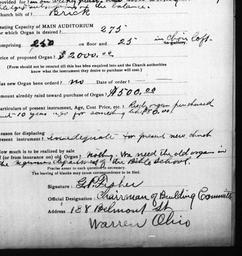 Church built of Brick
Capacity of MAIN AUDITORIUM
for which Organ is desired? 275
Comprising 250 on floor and 25 in choir loft.
Proposed price of Organ? $2000.00
(Form should not be returned till this has been enquired into and the Church authorities
know what the instrument they desire to purchase will cost.)
Has new Organ been ordered? no Date of order?
Amount already raised toward purchase of Organ? $500.00
Particulars of present instrument, Age, Cost Price, etc.? Reed organ purchased
10 years ago for something
Reason for displacing
present instrument? inadequate for present new church
How much is to be realized by sale
(or from instrument) on old Organ? Nothing. We need the old organ in
the Department of the Bible School.
Answers must be given to the preceding questions.
The leaving of blanks may cause correspondence to be filed.
Signature:
Official Designation: Chairman of Building Committee
Address: 188 Belmont St.
Warren Ohio